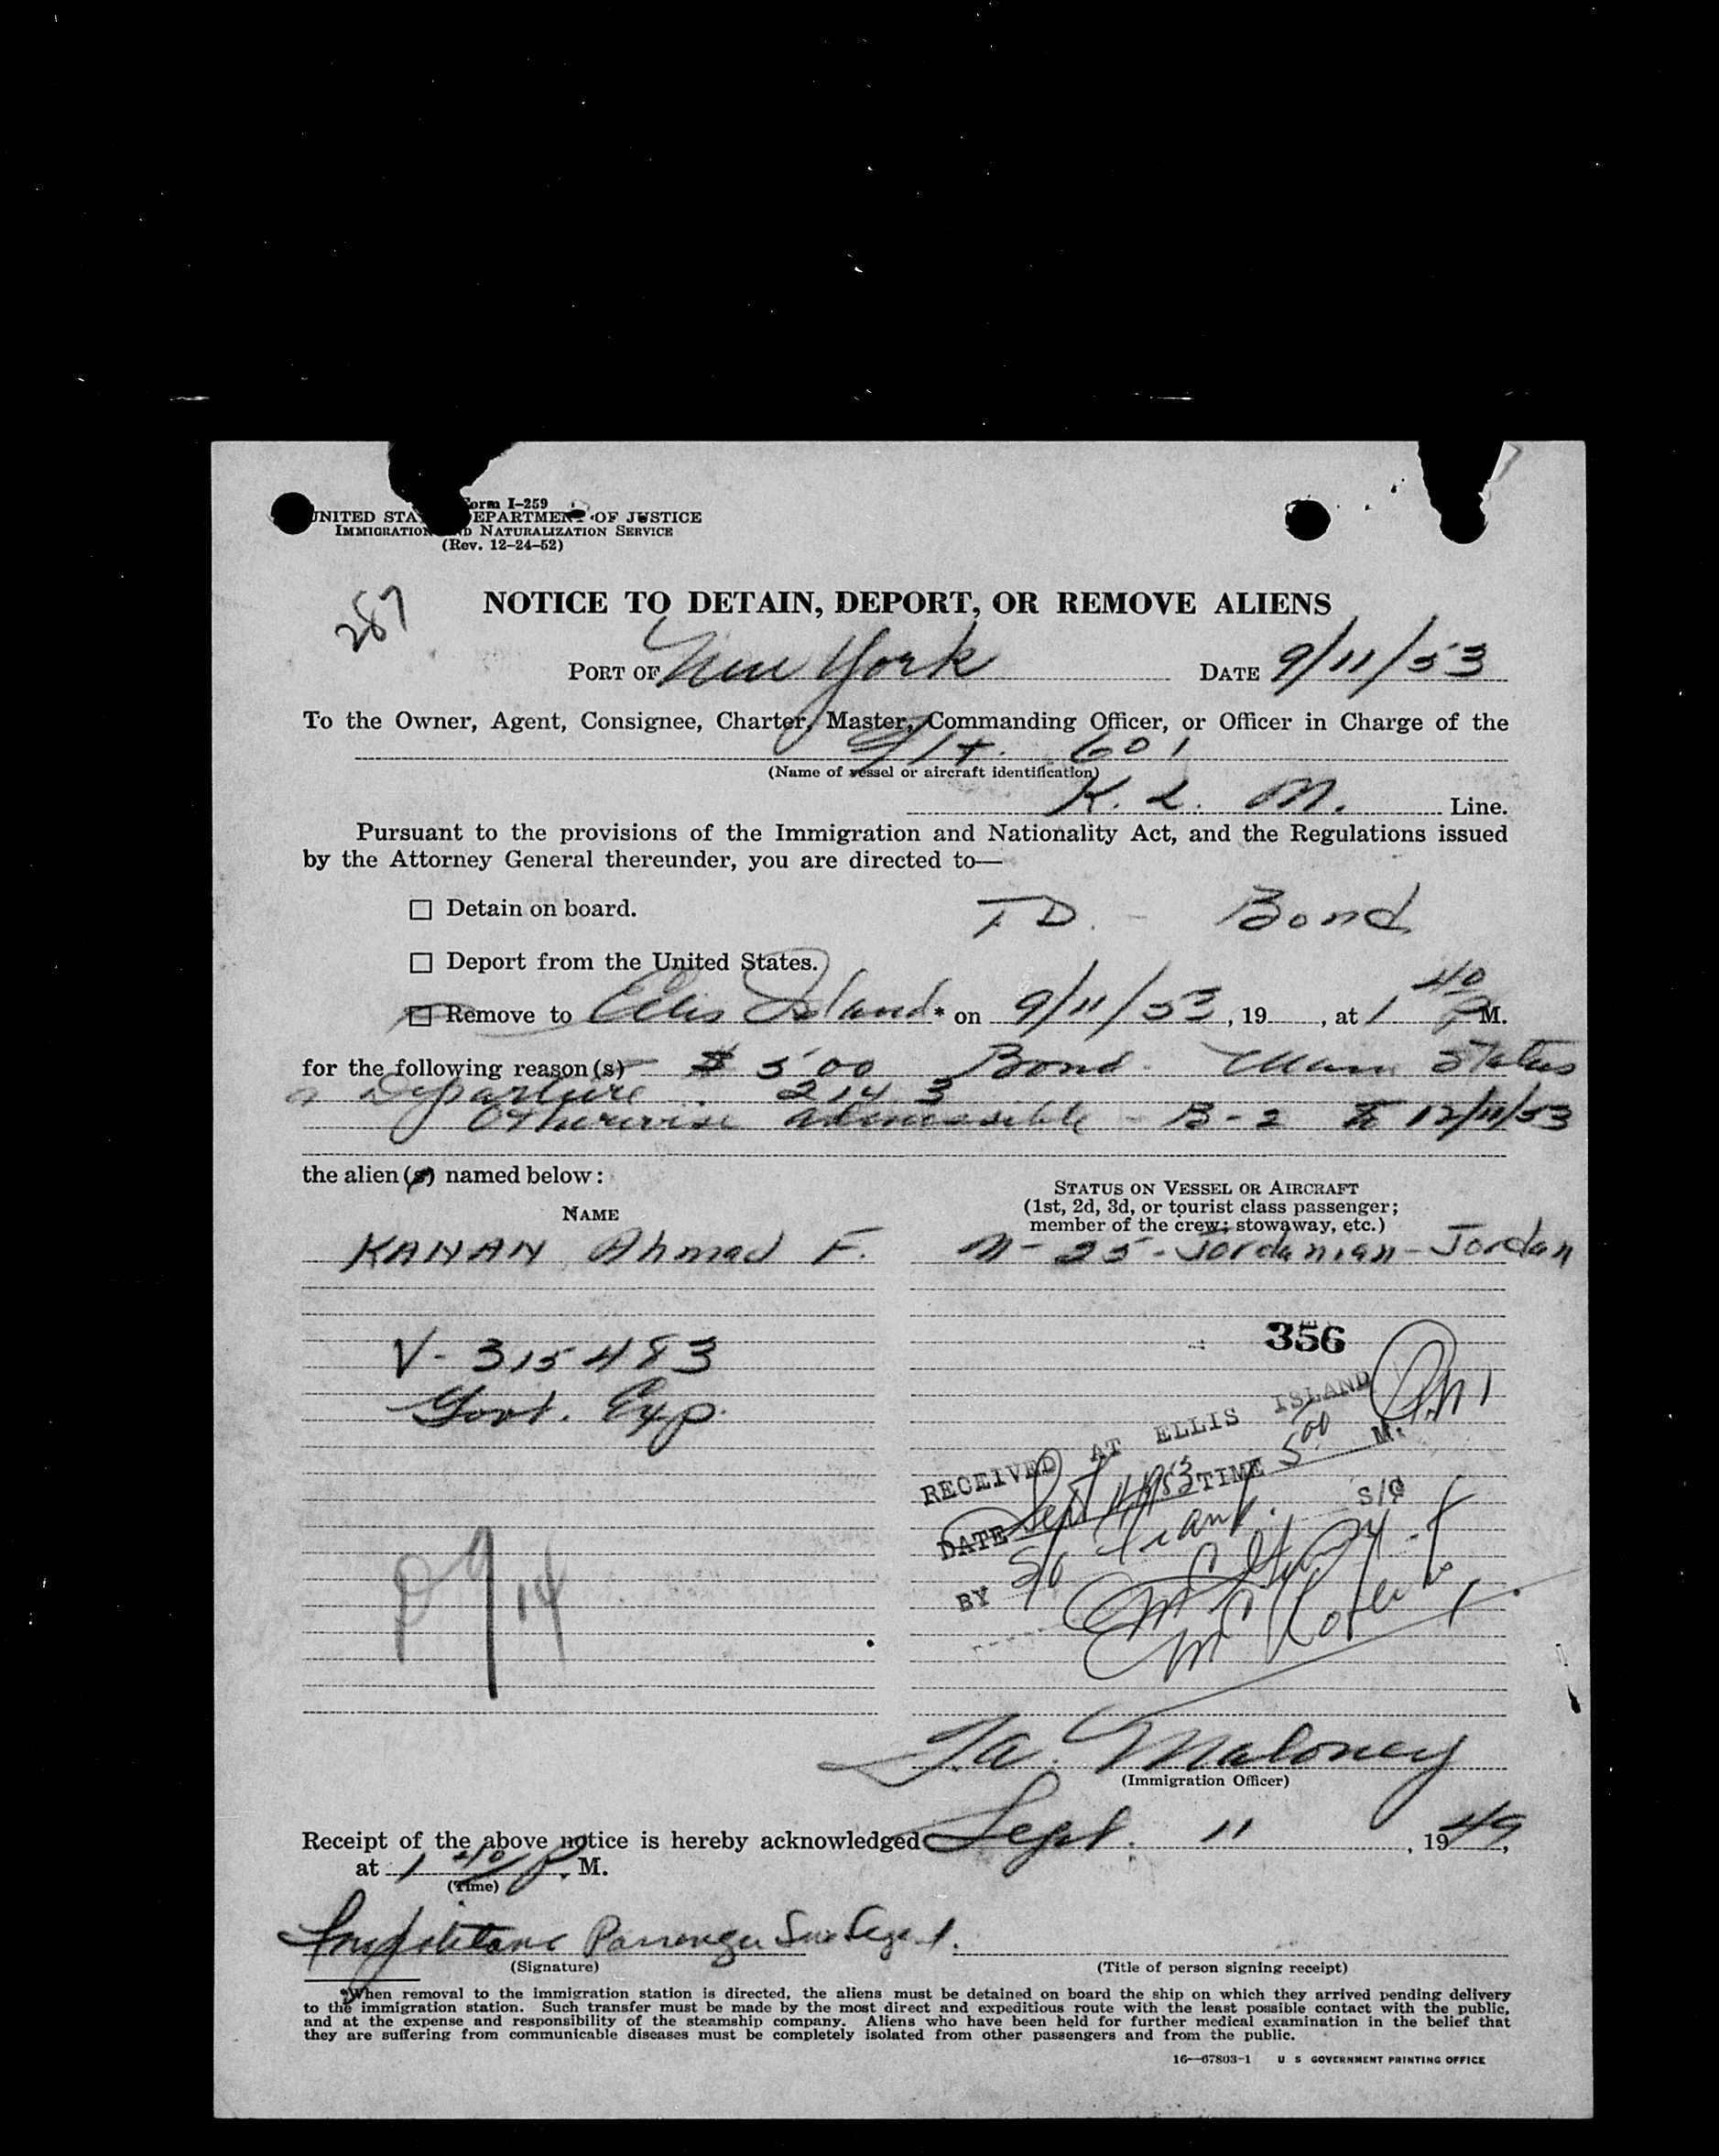 Form I-259
UNITED STA DEPARTMENT OF JUSTICE
IMMIGRATION AND NATURALIZATION SERVICE
(Rev. 12-24-52)
287
NOTICE TO DETAIN, DEPORT, OR REMOVE ALIENS
PORT OF New York DATE 9/11/53
To the Owner, Agent, Consignee, Charter, Master, Commanding Officer, or Officer in Charge of the
Flt. 601
(Name of vessel or aircraft identification)
K. L. M. Line.
Pursuant to the provisions of the Immigration and Nationality Act, and the Regulations issued
by the Attorney General thereunder, you are directed to—
☐ Detain on board. T.D. - Bond
☐ Deport from the United States.
☐ Remove to Ellis Island * on 9/11/53, 19 , at 1 40 P M.
for the following reason(s) $500 Bond. Status
Departure. 214 3
Otherwise admissible - B-2 12/11/53
the alien(s) named below:
NAME
STATUS ON VESSEL OR AIRCRAFT
(1st, 2d, 3d, or tourist class passenger;
member of the crew; stowaway, etc.)
KANAN Ahmad F. M - 25 - Jordanian - Jordan
356
V-315483
Govt. Exp.
RECEIVED AT ELLIS ISLAND
DATE Sept 11 1953 TIME 5 00 M. PM
BY S/O
S/O
P 9/14
T.A. Maloney
(Immigration Officer)
Receipt of the above notice is hereby acknowledged Sept. 11, 1949,
at 1 40 P. M.
(Time)
Passenger
(Signature) (Title of person signing receipt)
*When removal to the immigration station is directed, the aliens must be detained on board the ship on which they arrived pending delivery
to the immigration station. Such transfer must be made by the most direct and expeditious route with the least possible contact with the public,
and at the expense and responsibility of the steamship company. Aliens who have been held for further medical examination in the belief that
they are suffering from communicable diseases must be completely isolated from other passengers and from the public.
16—67803-1 U S GOVERNMENT PRINTING OFFICE